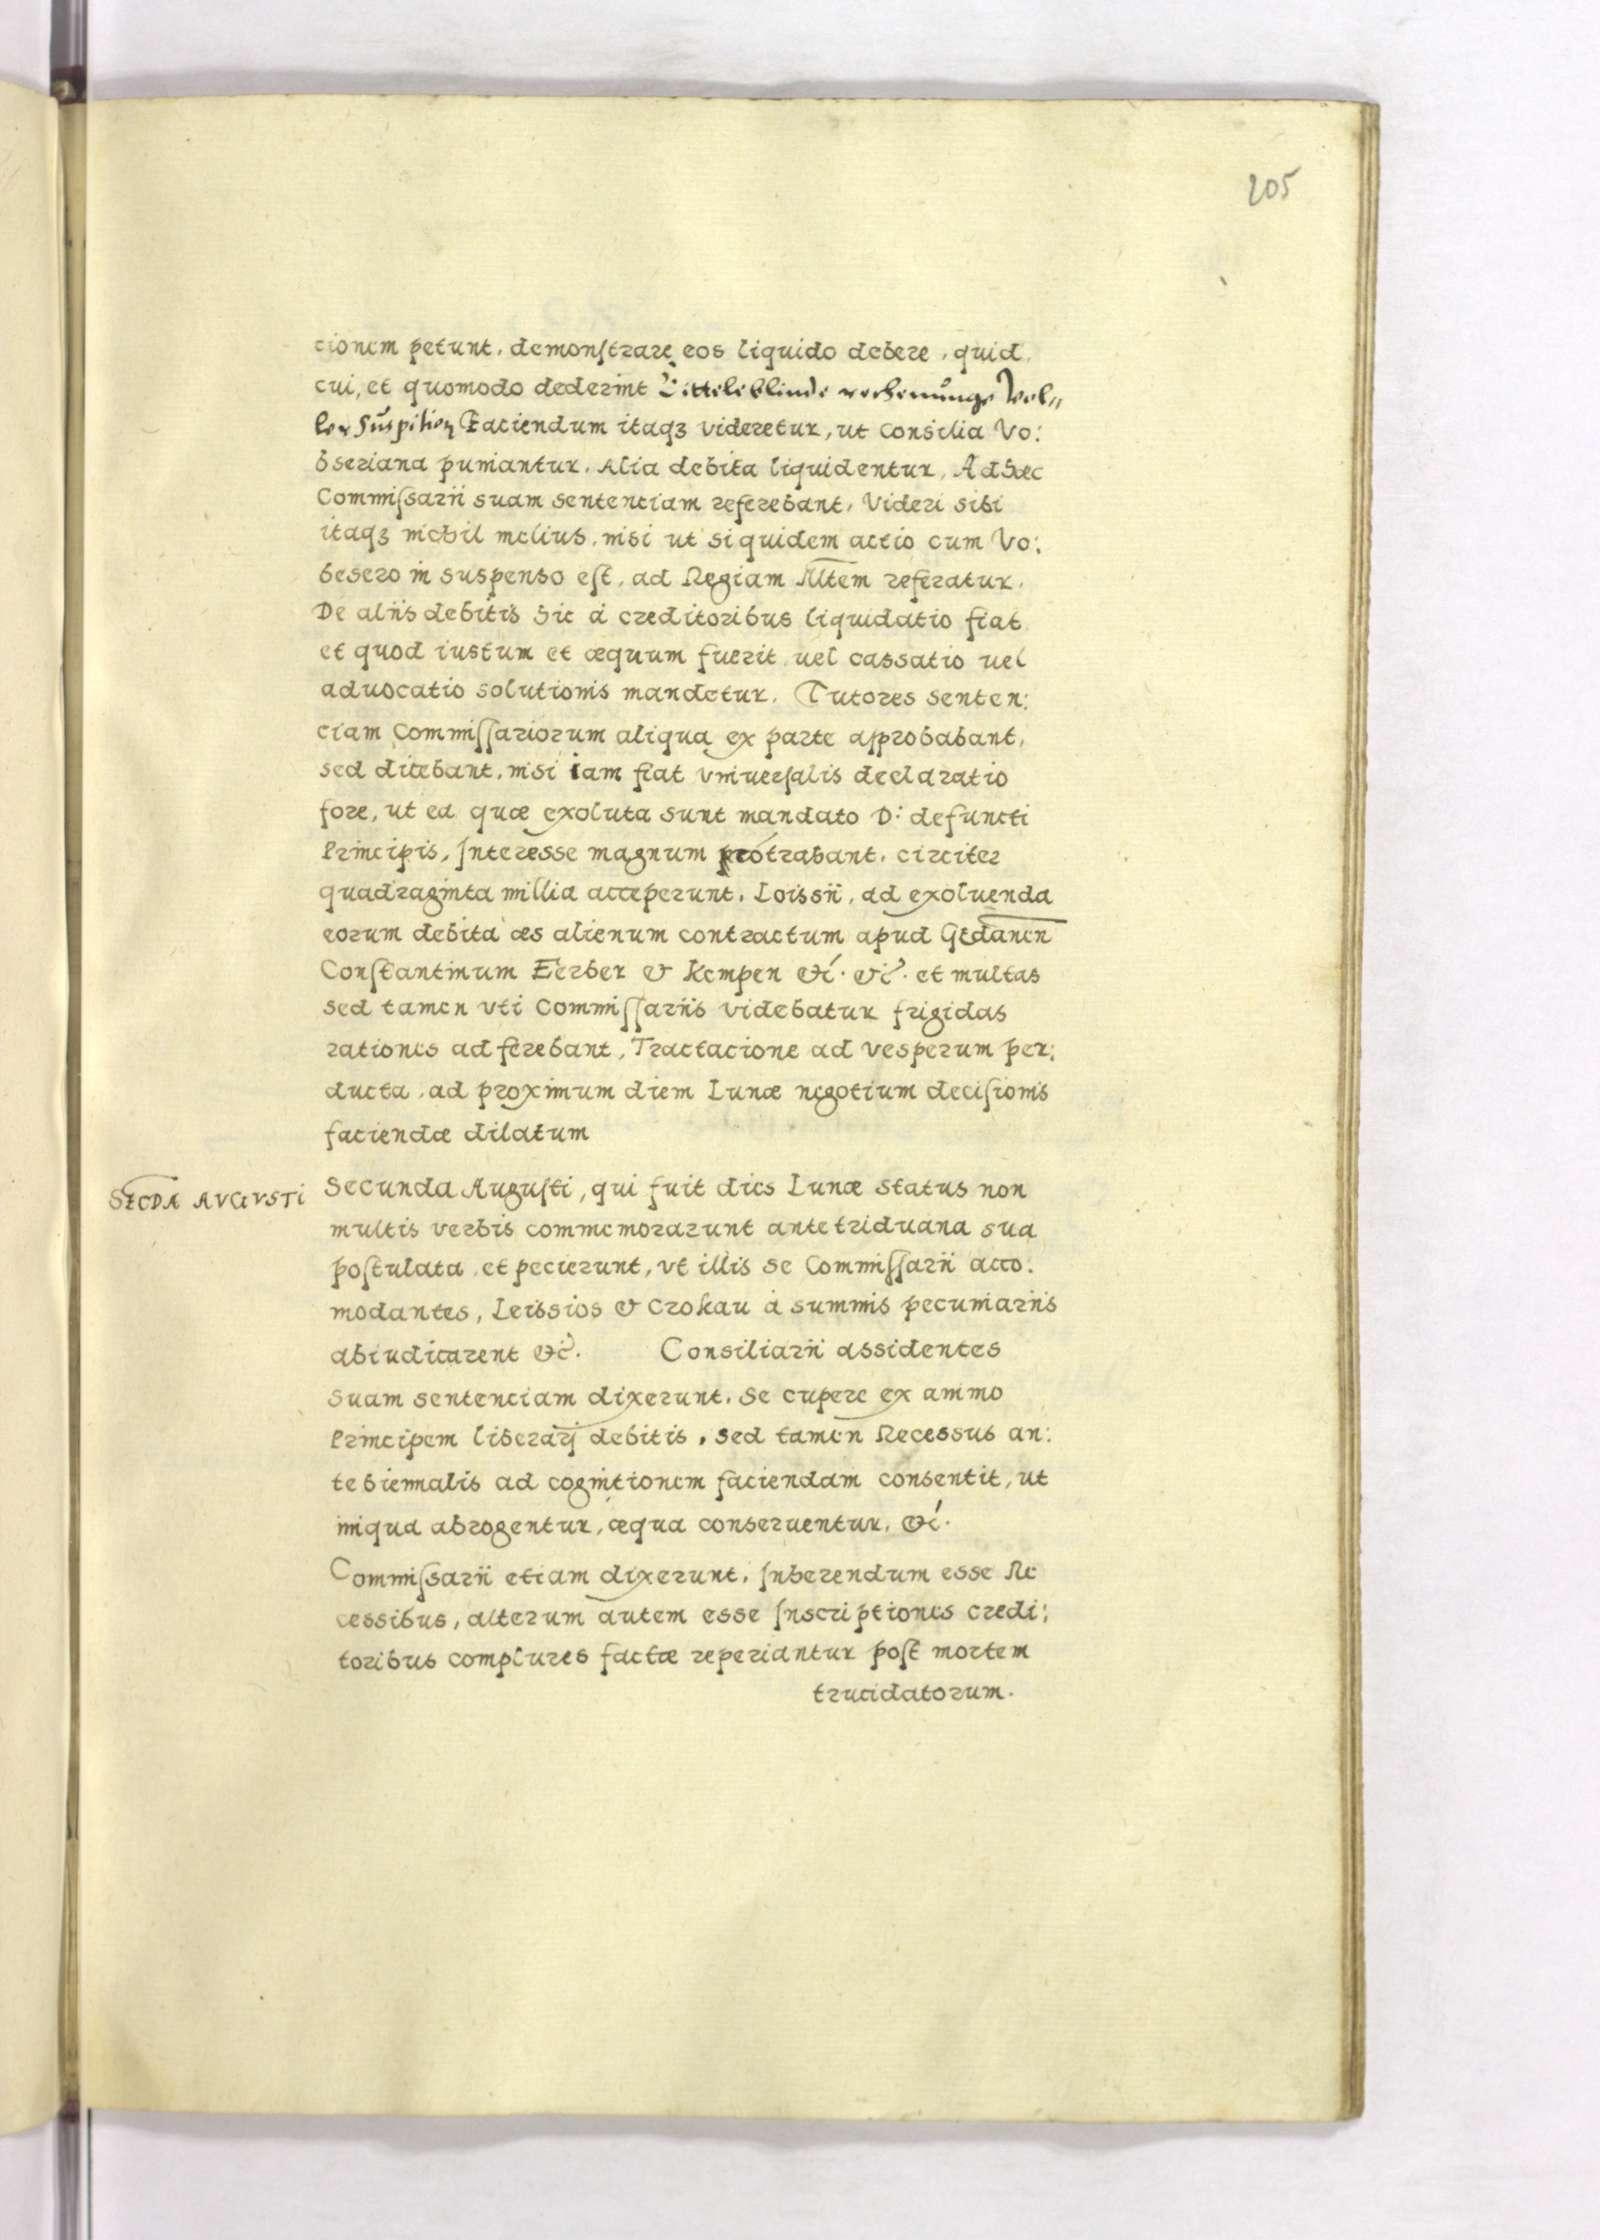 205
cionem petunt, demonstrare eos liquido debere, quid,
cui, et quomodo dederint Titteleblinde rechenunge vol„
ler Suspition Faciendum itaqꝫ videretur, ut Consilia Vo:
bseriana puniantur. Alia debita liquidentur, Ad hæc
Commissarii suam sentenciam referebant, Videri sibi
itaqꝫ nichil melius, nisi ut siquidem actio cum Vo:
besero in suspenso est, ad Regiam Mtem referatur.
De aliis debitis sic à creditoribus liquidatio fiat
et quod iustum et æquum fuerit, uel cassatio uel
aduocatio solutionis mandetur. Tutores senten:
ciam Commissariorum aliqua ex parte approbabant,
sed dicebant, nisi iam fiat vniuersalis declaratio
fore, ut ea quæ exoluta sunt mandato D: defuncti
Principis, Interesse magnum protrahant, circiter
quadraginta millia acceperunt, Loissii, ad exoluenda
eorum debita æs alienum contractum apud Gedanen
Constantinum Ferber & Kempen &c. &c. et multas
sed tamen vti Commissariis videbatur frigidas
rationes adferebant, Tractacione ad vesperum per:
ducta, ad proximum diem Lunæ negotium decisionis
faciendæ dilatum
SECDA AVGVSTI
Secunda Augusti, qui fuit dies Lunæ status non
multis verbis commemorarunt ante triduana sua
postulata, et pecierunt, vt illis se Commissarii acco:
modantes, Leissios & Crokau à summis pecuniariis
abiudicarent &c. Consiliarii assidentes
Suam sentenciam dixerunt, Se cupere ex animo
Principem liberarj debitis, sed tamen Recessus an:
te biennalis ad cognitionem faciendam consentit, ut
iniqua abrogentur, æqua conseruentur, &c.
Commissarii etiam dixerunt, Inherendum esse Re
cessibus, alterum autem esse Inscriptiones credi:
toribus complures factæ reperiantur post mortem
trucidatorum.